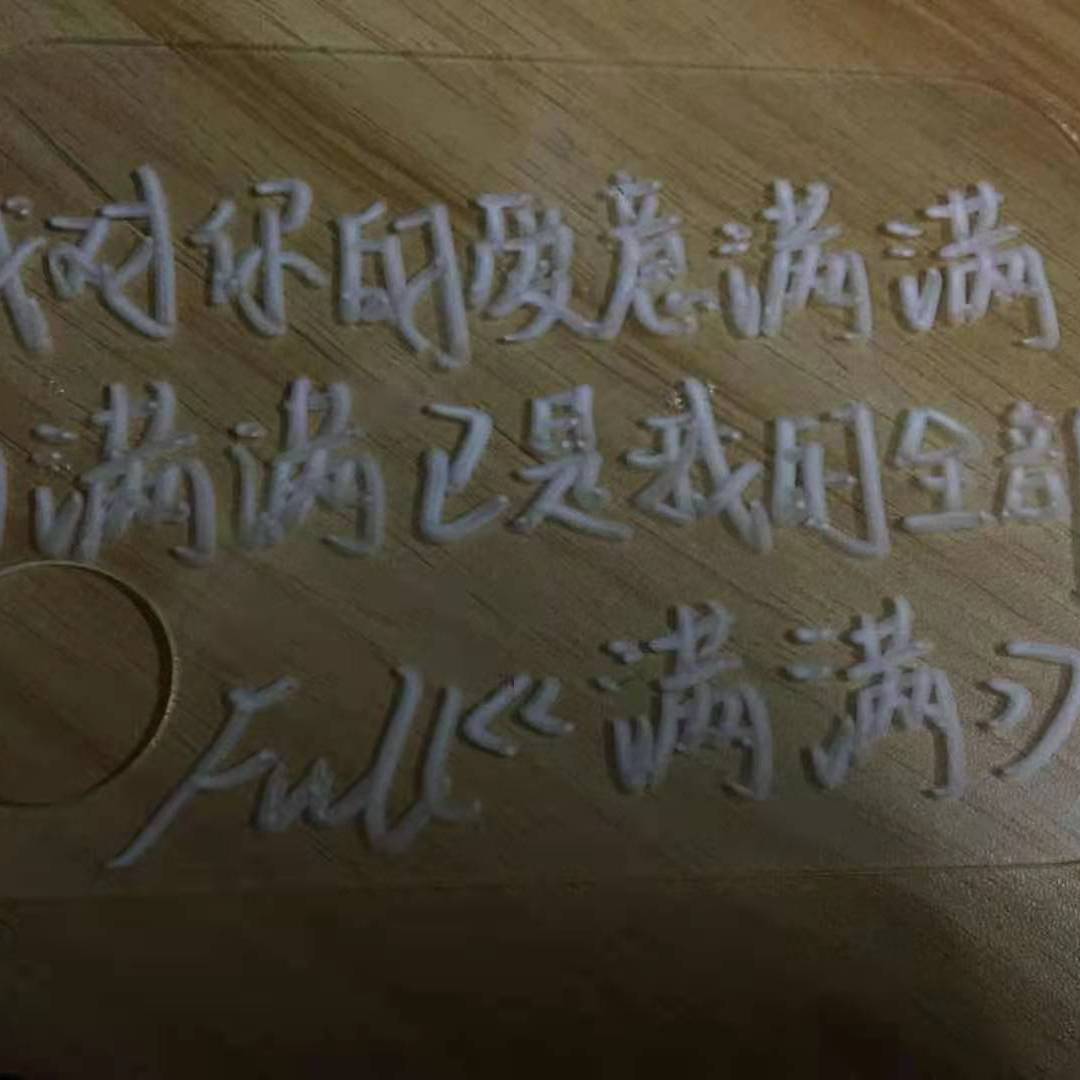 我对你的爱意满满
满满已是我的全部
Full《满满》